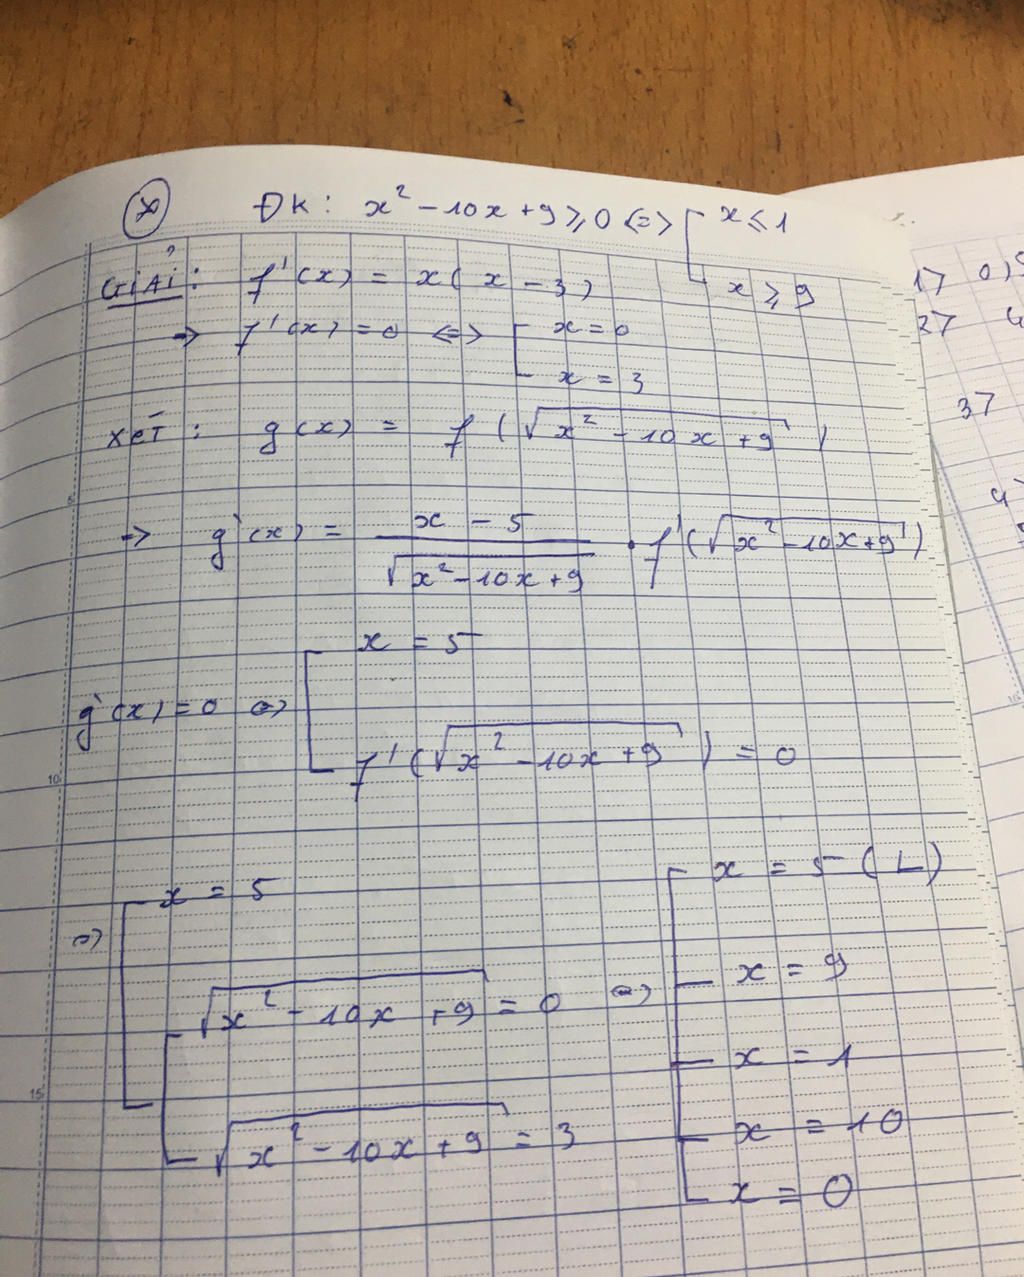 ĐK: x² - 10x + 9 ≥ 0 <=> [ x ≤ 1
x ≥ 9
Giải: f'(x) = x(x - 3)
→ f'(x) = 0 <=> [ x = 0
x = 3
Xét: g(x) = f(√(x² - 10x + 9))
→ g'(x) = (x - 5)/√(x² - 10x + 9) . f'(√(x² - 10x + 9))
g'(x) = 0 <=> [ x = 5
f'(√(x² - 10x + 9)) = 0
<=> [ x = 5
[ √(x² - 10x + 9) = 0
√(x² - 10x + 9) = 3
<=> [ x = 5 (L)
x = 9
x = 1
x = 10
x = 0
5
10
15
17
37
37